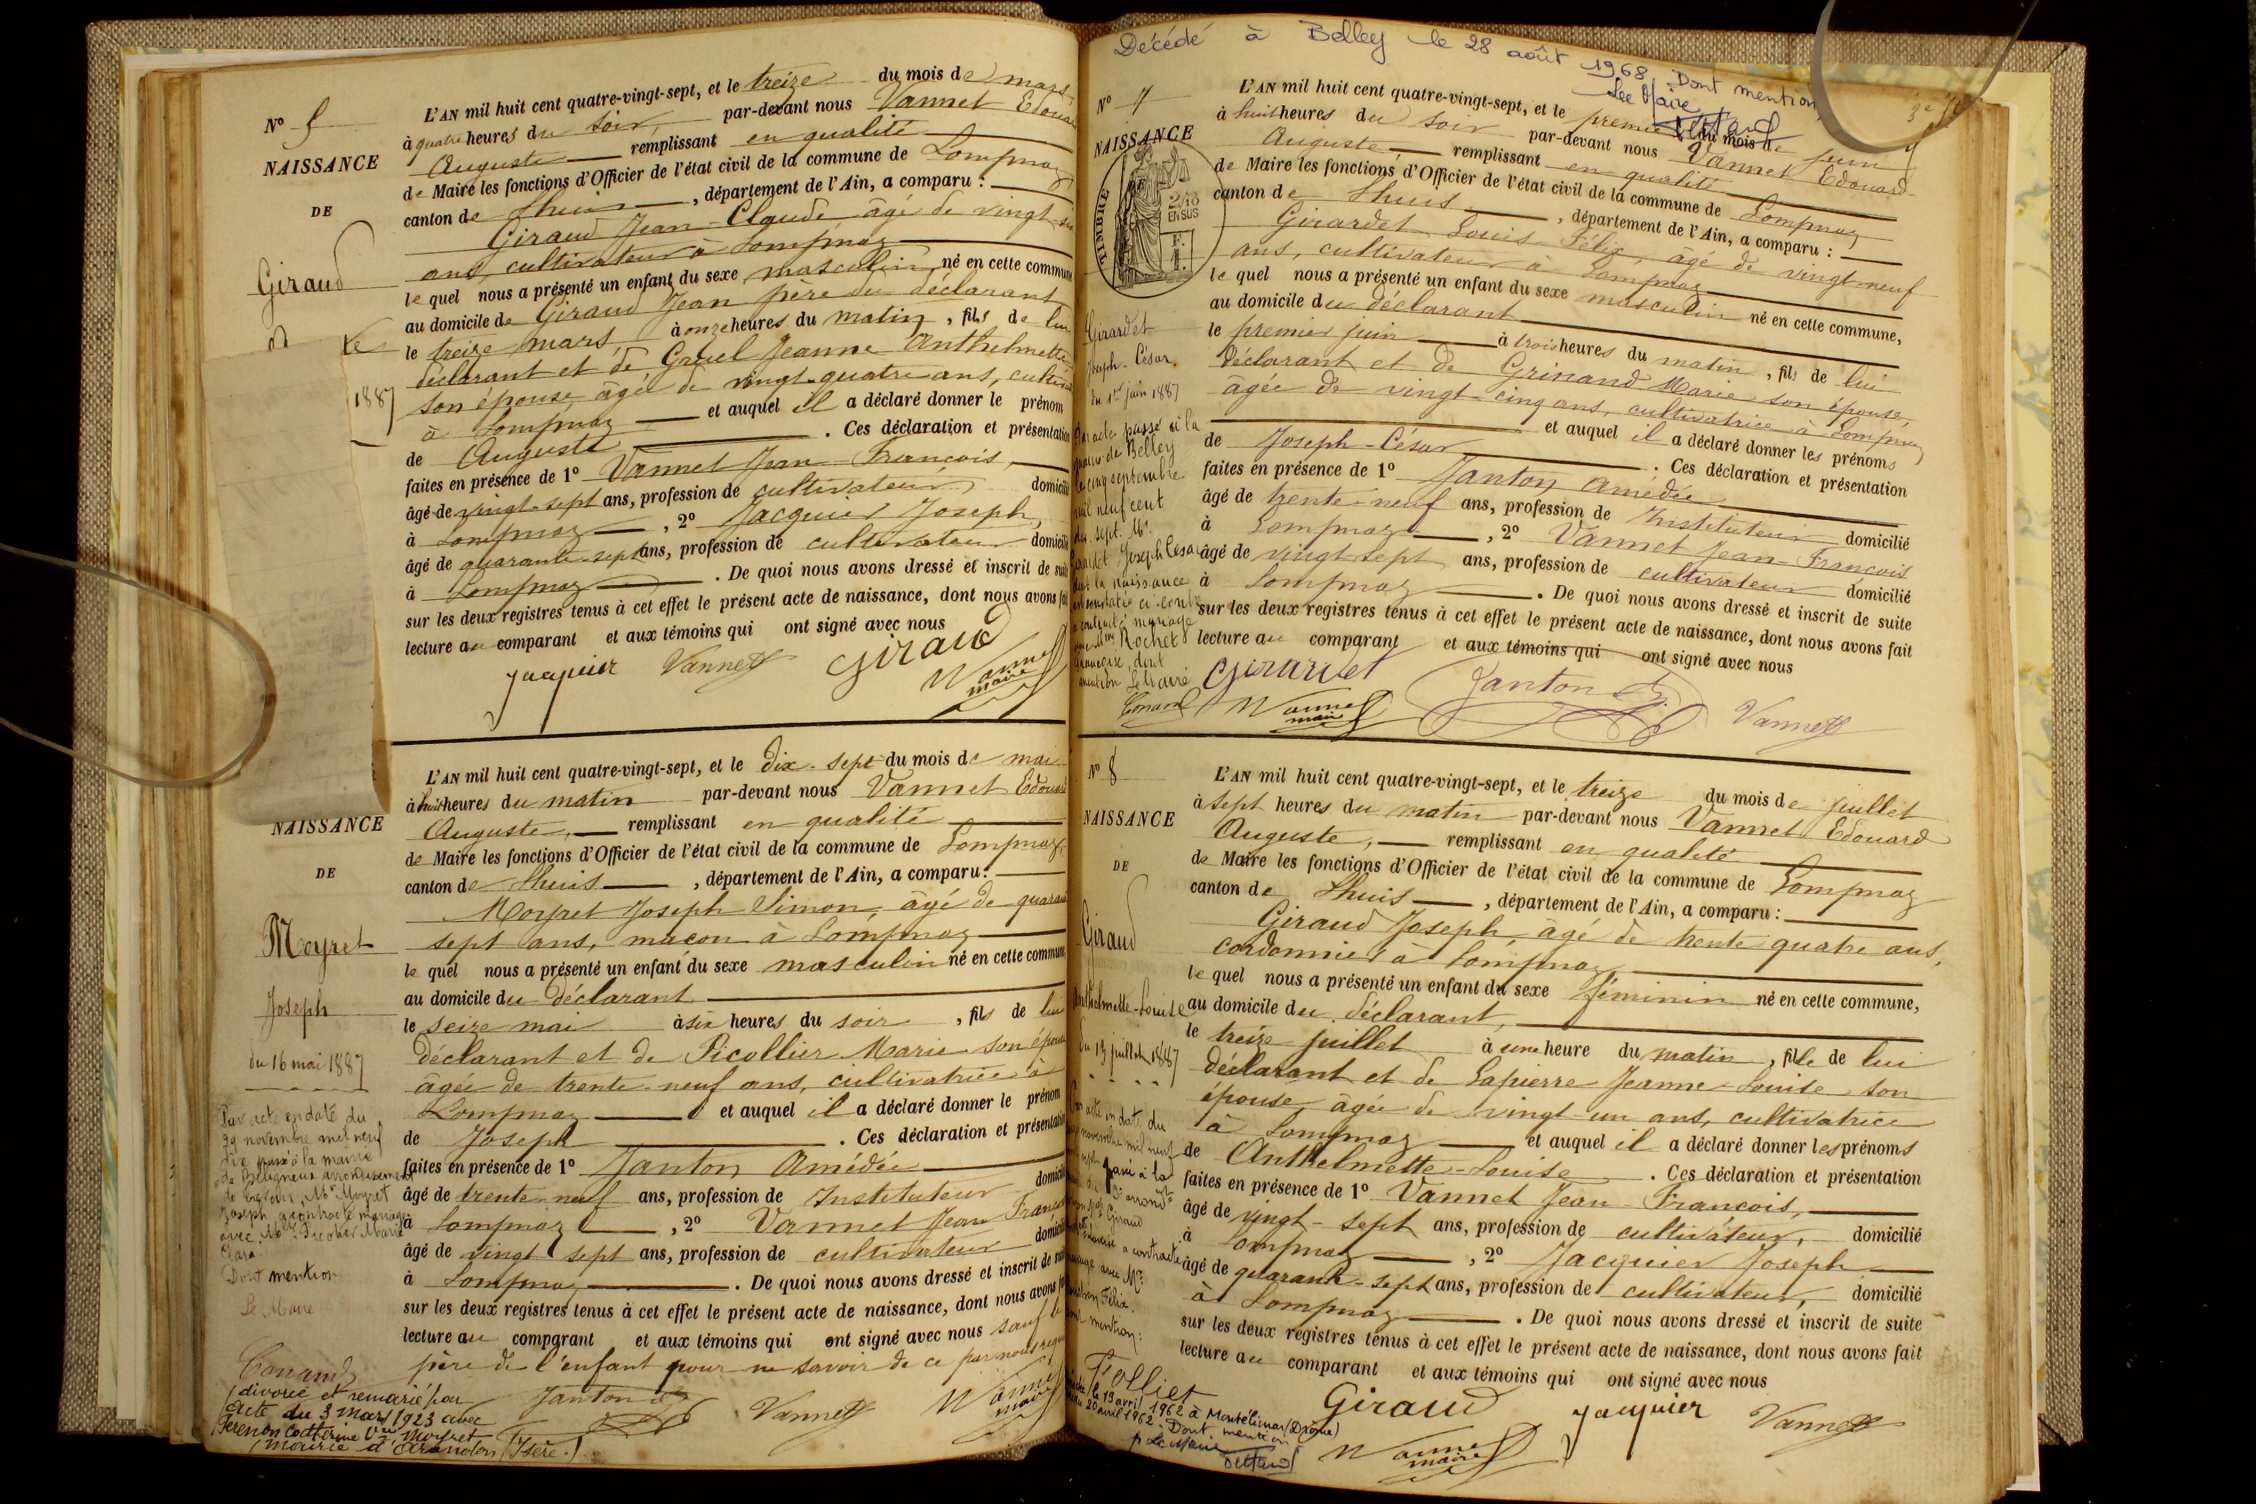 N° 5
NAISSANCE
DE
Giraud
1887
L'AN mil huit cent quatre-vingt-sept, et le treize du mois de mars,
à quatre heures du soir, par-devant nous Vannet Edouar
Auguste remplissant en qualité
de Maire les fonctions d'Officier de l'état civil de la commune de Lompnaz,
canton de Lhuis, département de l'Ain, a comparu :
Giraud Jean-Claude âgé de vingt-six
ans, cultivateur à Lompnaz
le quel nous a présenté un enfant du sexe masculin, né en cette commune
au domicile de Giraud Jean père du déclarant
le treize mars, à onze heures du matin, fils de lui
déclarant et de Gruel Jeanne Anthelmette
son épouse âgée de vingt-quatre ans, cultiva
à Lompnaz et auquel il a déclaré donner le prénom
de Auguste. Ces déclaration et présentation
faites en présence de 1° Vannet Jean François,
âgé de vingt-sept ans, profession de cultivateur, domicilié
à Lompnaz, 2° Jacquier Joseph,
âgé de quarante-sept ans, profession de cultivateur domicilié
à Lompnaz. De quoi nous avons dressé et inscrit de suite
sur les deux registres tenus à cet effet le présent acte de naissance, dont nous avons fait
lecture au comparant et aux témoins qui ont signé avec nous
Jacquier Vannet Giraud
Vannet
maire
NAISSANCE
DE
Meyret
Joseph
du 16 mai 1887
Par acte en date du
29 novembre mil neuf
dix passé à la mairie
de Béligneux arrondissement
de Trévoux, Mr Moyret
Joseph a contracté mariage
avec Melle Picollier Marie
Clara
Dont mention
Le Maire
Conand
(divorcé et remarié par
Acte du 3 Mars 1923 avec
Ferenon Catherine Vve Moyret
(Mairie d'Arandon (Isère.)
L'AN mil huit cent quatre-vingt-sept, et le dix-sept du mois de mai
à huit heures du matin par-devant nous Vannet Edouard
Auguste, remplissant en qualité
de Maire les fonctions d'Officier de l'état civil de la commune de Lompnaz,
canton de Lhuis, département de l'Ain, a comparu :
Moyret Joseph Simon, âgé de quarante
sept ans, maçon à Lompnaz
le quel nous a présenté un enfant du sexe masculin né en cette commune
au domicile du déclarant
le seize mai à six heures du soir, fils de lui
déclarant et de Picollier Marie son épouse
âgée de trente-neuf ans, cultivatrice à
Lompnaz et auquel il a déclaré donner le prénom
de Joseph. Ces déclaration et présentation
faites en présence de 1° Janton Amédée
âgé de trente-neuf ans, profession de Instituteur domicilié
à Lompnaz, 2° Vannet Jean François
âgé de vingt sept ans, profession de cultivateur domicilié
à Lompnaz. De quoi nous avons dressé et inscrit de suite
sur les deux registres tenus à cet effet le présent acte de naissance, dont nous avons fait
lecture au comparant et aux témoins qui ont signé avec nous sauf le
père de l'enfant pour ne savoir de ce par nous requis
Janton Vannet Vannet
maire
Décédé à Belley le 28 août 1968 Dont mention
Le Maire
N° 7
NAISSANCE
TIMBRE
2/10
EN SUS
Girardet
Joseph-César
du 1er juin 1887
Par acte passé à la
mairie de Belley
le cinq septembre
mil neuf cent
dix sept, Mr
Girardet Joseph César
dont la naissance
est constatée ci-contre
a contracté mariage
avec Melle Rochet
Françoise, dont
mention Le Maire
Conand
L'AN mil huit cent quatre-vingt-sept, et le premier du mois de juin
à huit heures du soir par-devant nous Vannet Edouard
Auguste remplissant en qualité
de Maire les fonctions d'Officier de l'état civil de la commune de Lompnaz
canton de Lhuis, département de l'Ain, a comparu :
Girardet Louis Félix, âgé de vingt-neuf
ans, cultivateur à Lompnaz
le quel nous a présenté un enfant du sexe masculin né en cette commune,
au domicile du déclarant
le premier juin à trois heures du matin, fils de lui
déclarant et de Grinand Marie son épouse
âgée de vingt-cinq ans, cultivatrice à Lompnaz
et auquel il a déclaré donner les prénoms
de Joseph-César. Ces déclaration et présentation
faites en présence de 1° Janton Amédée
âgé de trente-neuf ans, profession de Instituteur domicilié
à Lompnaz, 2° Vannet Jean-François
âgé de vingt sept ans, profession de cultivateur domicilié
à Lompnaz. De quoi nous avons dressé et inscrit de suite
sur les deux registres tenus à cet effet le présent acte de naissance, dont nous avons fait
lecture au comparant et aux témoins qui ont signé avec nous
Girardet Janton
Vannet
maire
Vannet
N° 8
NAISSANCE
DE
Giraud
Anthelmette-Louise
du 13 juillet 1887
acte en date du
novembre mil neuf
passé à la
Giraud
a contracté
mariage avec Mr
Félix.
mention :
Folliet
le 19 avril 1962 à Montélimar (Drôme)
20 avril 1962. Dont mention
p Le Maire
L'AN mil huit cent quatre-vingt-sept, et le treize du mois de juillet
à sept heures du matin par-devant nous Vannet Edouard
Auguste, remplissant en qualité
de Maire les fonctions d'Officier de l'état civil de la commune de Lompnaz
canton de Lhuis, département de l'Ain, a comparu :
Giraud Joseph âgé de trente quatre ans,
cordonnier à Lompnaz
le quel nous a présenté un enfant du sexe féminin né en cette commune,
au domicile du déclarant,
le treize juillet à une heure du matin, fille de lui
déclarant et de Lapierre Jeanne-Louise son
épouse âgée de vingt-un ans, cultivatrice
à Lompnaz et auquel il a déclaré donner les prénoms
de Anthelmette-Louise. Ces déclaration et présentation
faites en présence de 1° Vannet Jean-François,
âgé de vingt-sept ans, profession de cultivateur, domicilié
à Lompnaz, 2° Jacquier Joseph
âgé de quarante-sept ans, profession de cultivateur, domicilié
à Lompnaz. De quoi nous avons dressé et inscrit de suite
sur les deux registres tenus à cet effet le présent acte de naissance, dont nous avons fait
lecture au comparant et aux témoins qui ont signé avec nous
Giraud Jacquier Vannet
Vannet
maire